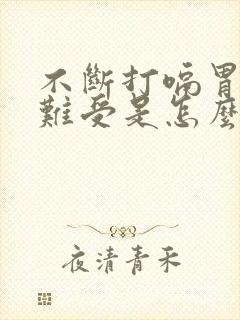 不斷打嗝胃
難受是怎麼
夜清青禾